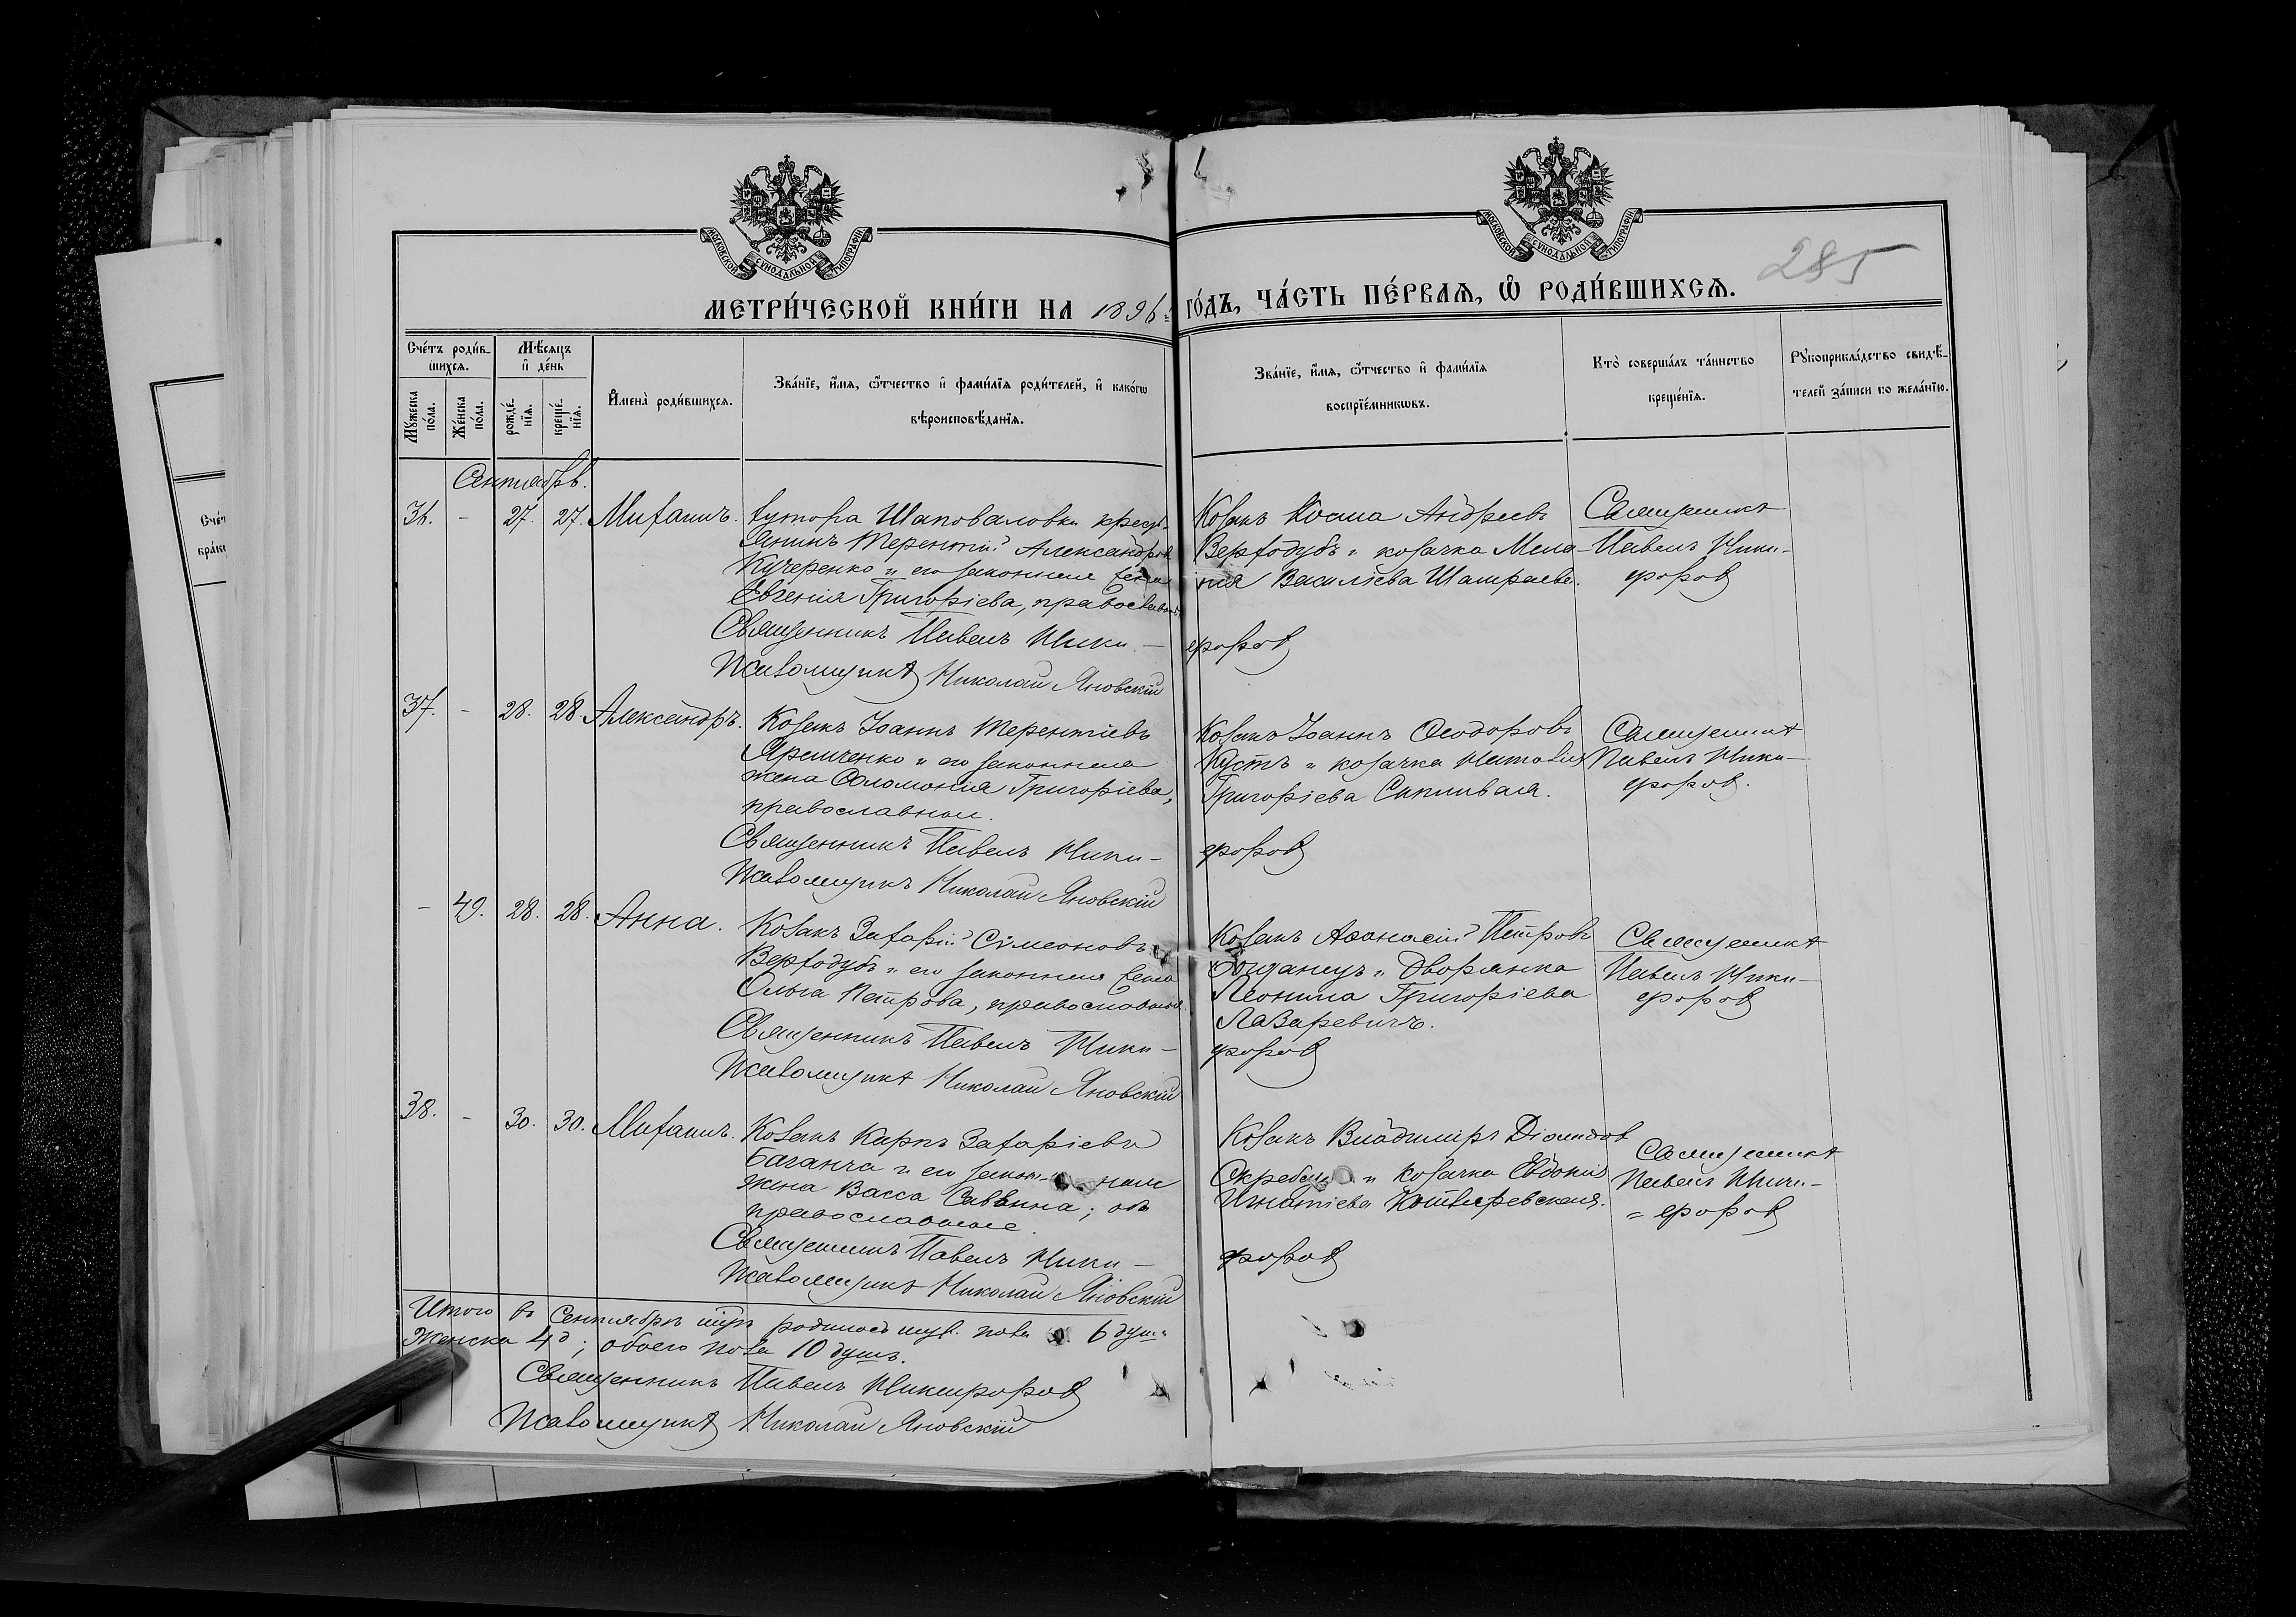 МОСКОВСКОЙ СѴНОДАЛЬНОЙ ТИПОГРАФІИ
МОСКОВСКОЙ СѴНОДАЛЬНОЙ ТИПОГРАФІИ
285
МЕТРИ́ЧЕСКОЙ КНИ́ГИ НА 1896 го́дъ, ЧА́СТЬ ПЕ́РВАѦ, Ѡ҆ РОДИ́ВШИХСѦ.
Сче́тъ роди́в-
шихсѧ.
Мꙋ́жеска по́ла.
Же́нска по́ла.
Мѣ́сѧцъ
и҆ де́нь
рожде́-
нїѧ.
креще́-
нїѧ.
И҆мена̀ роди́вшихсѧ.
Зва́нїе, и҆́мѧ, ѻ҆́тчество и҆ фами́лїѧ роди́телей, и҆ како́гѡ
вѣроисповѣ́данїѧ.
Зва́нїе, и҆́мѧ, ѻ҆́тчество и҆ фами́лїѧ
воспрїе́мникѡвъ.
Кто̀ соверша́лъ та́инство
креще́нїѧ.
Рꙋкоприкла́дство свидѣ́-
телей за́писи по жела́нїю.
Сентябрь.
36. - 27. 27. Михаилъ. хутора Шаповаловки кресть-
янинъ Терентій Александровъ
Кучеренко и его законная жена
Евгенія Григоріева, православные
Священникъ Павелъ Ники-
форов
Псаломщикъ Николай Яновскій
Козакъ Косма Андреевъ
Верходубъ и козачка Мела-
нія Василіева
Священникъ
Павелъ Ники-
форов
37. - 28. 28. Александръ. Козакъ Іоаннъ Терентіевъ
Яременко и его законная
жена Соломонія Григоріева,
православные.
Священникъ Павелъ Ники-
форов
Псаломщикъ Николай Яновскій
Козакъ Іоаннъ Ѳеодоровъ
Кустъ и козачка Наталія
Григоріева Сипливая.
Священникъ
Павелъ Ники-
форов.
- 49. 28. 28. Анна. Козакъ Захарій Сімеоновъ
Верходубъ и его законная жена
Ольга Петрова, православные.
Священникъ Павелъ Ники-
форов
Псаломщикъ Николай Яновскій
Козакъ Аѳанасій Петровъ
Богданецъ и Дворянка
Леонила Григоріева
Лазаревичъ.
Священникъ
Павелъ Ники-
форов
38. - 30. 30. Михаилъ. Козакъ Карпъ Захаріевъ
Баганча и его закон- ная
жена Васса Саввина; оба
православные
Священникъ Павелъ Ники-
форов
Псаломщикъ Николай Яновскій
Козакъ Владиміръ Діомидов
и козачка Евдокія
Игнатіева
Священникъ
Павелъ Ники-
= форов
Итого въ Сентябрѣ мцѣ родилось муж. пола 6 душъ
Женска 4д; обоего пола 10 душъ.
Священникъ Павелъ Никифоров
Псаломщикъ Николай Яновскій